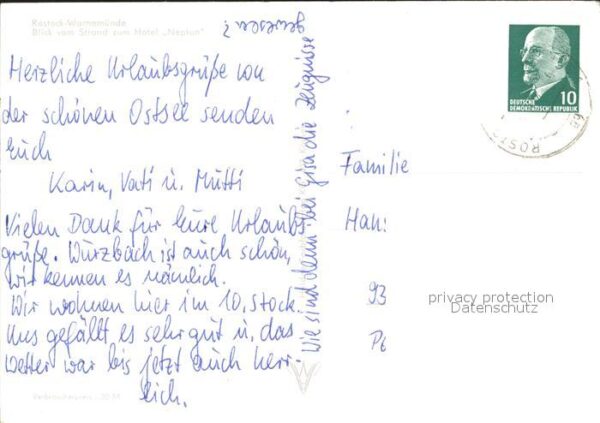 Rostock-Warnemünde
Blick vom Strand zum Hotel „Neptun“
Herzliche Urlaubsgrüße von
der schönen Ostsee senden
Euch
Karin, Vati u. Mutti
Vielen Dank für Eure Urlaubs-
grüße. Wurzbach ist auch schön,
wir kennen es nämlich.
Wir wohnen hier im 10. Stock.
Uns gefällt es sehr gut u. das
Wetter war bis jetzt auch herr-
lich.
Wie sind denn bei Gisa die Zeugnisse
gewesen?
DEUTSCHE
DEMOKRATISCHE REPUBLIK
10
ROSTO
Familie
Han:
93
privacy protection
Datenschutz